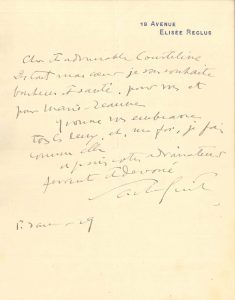 18 AVENUE
ELISÉE RECLUS
Cher et admirable Courteline
De tout mon cœur je vous souhaite
bonheur et santé, pour vous et
pour Marie-Jeanne
Yvonne vous embrasse
tous les deux, et, ma foi, je fais
comme elle
votre admirateur
fervent et dévoué
Sacha Guitry